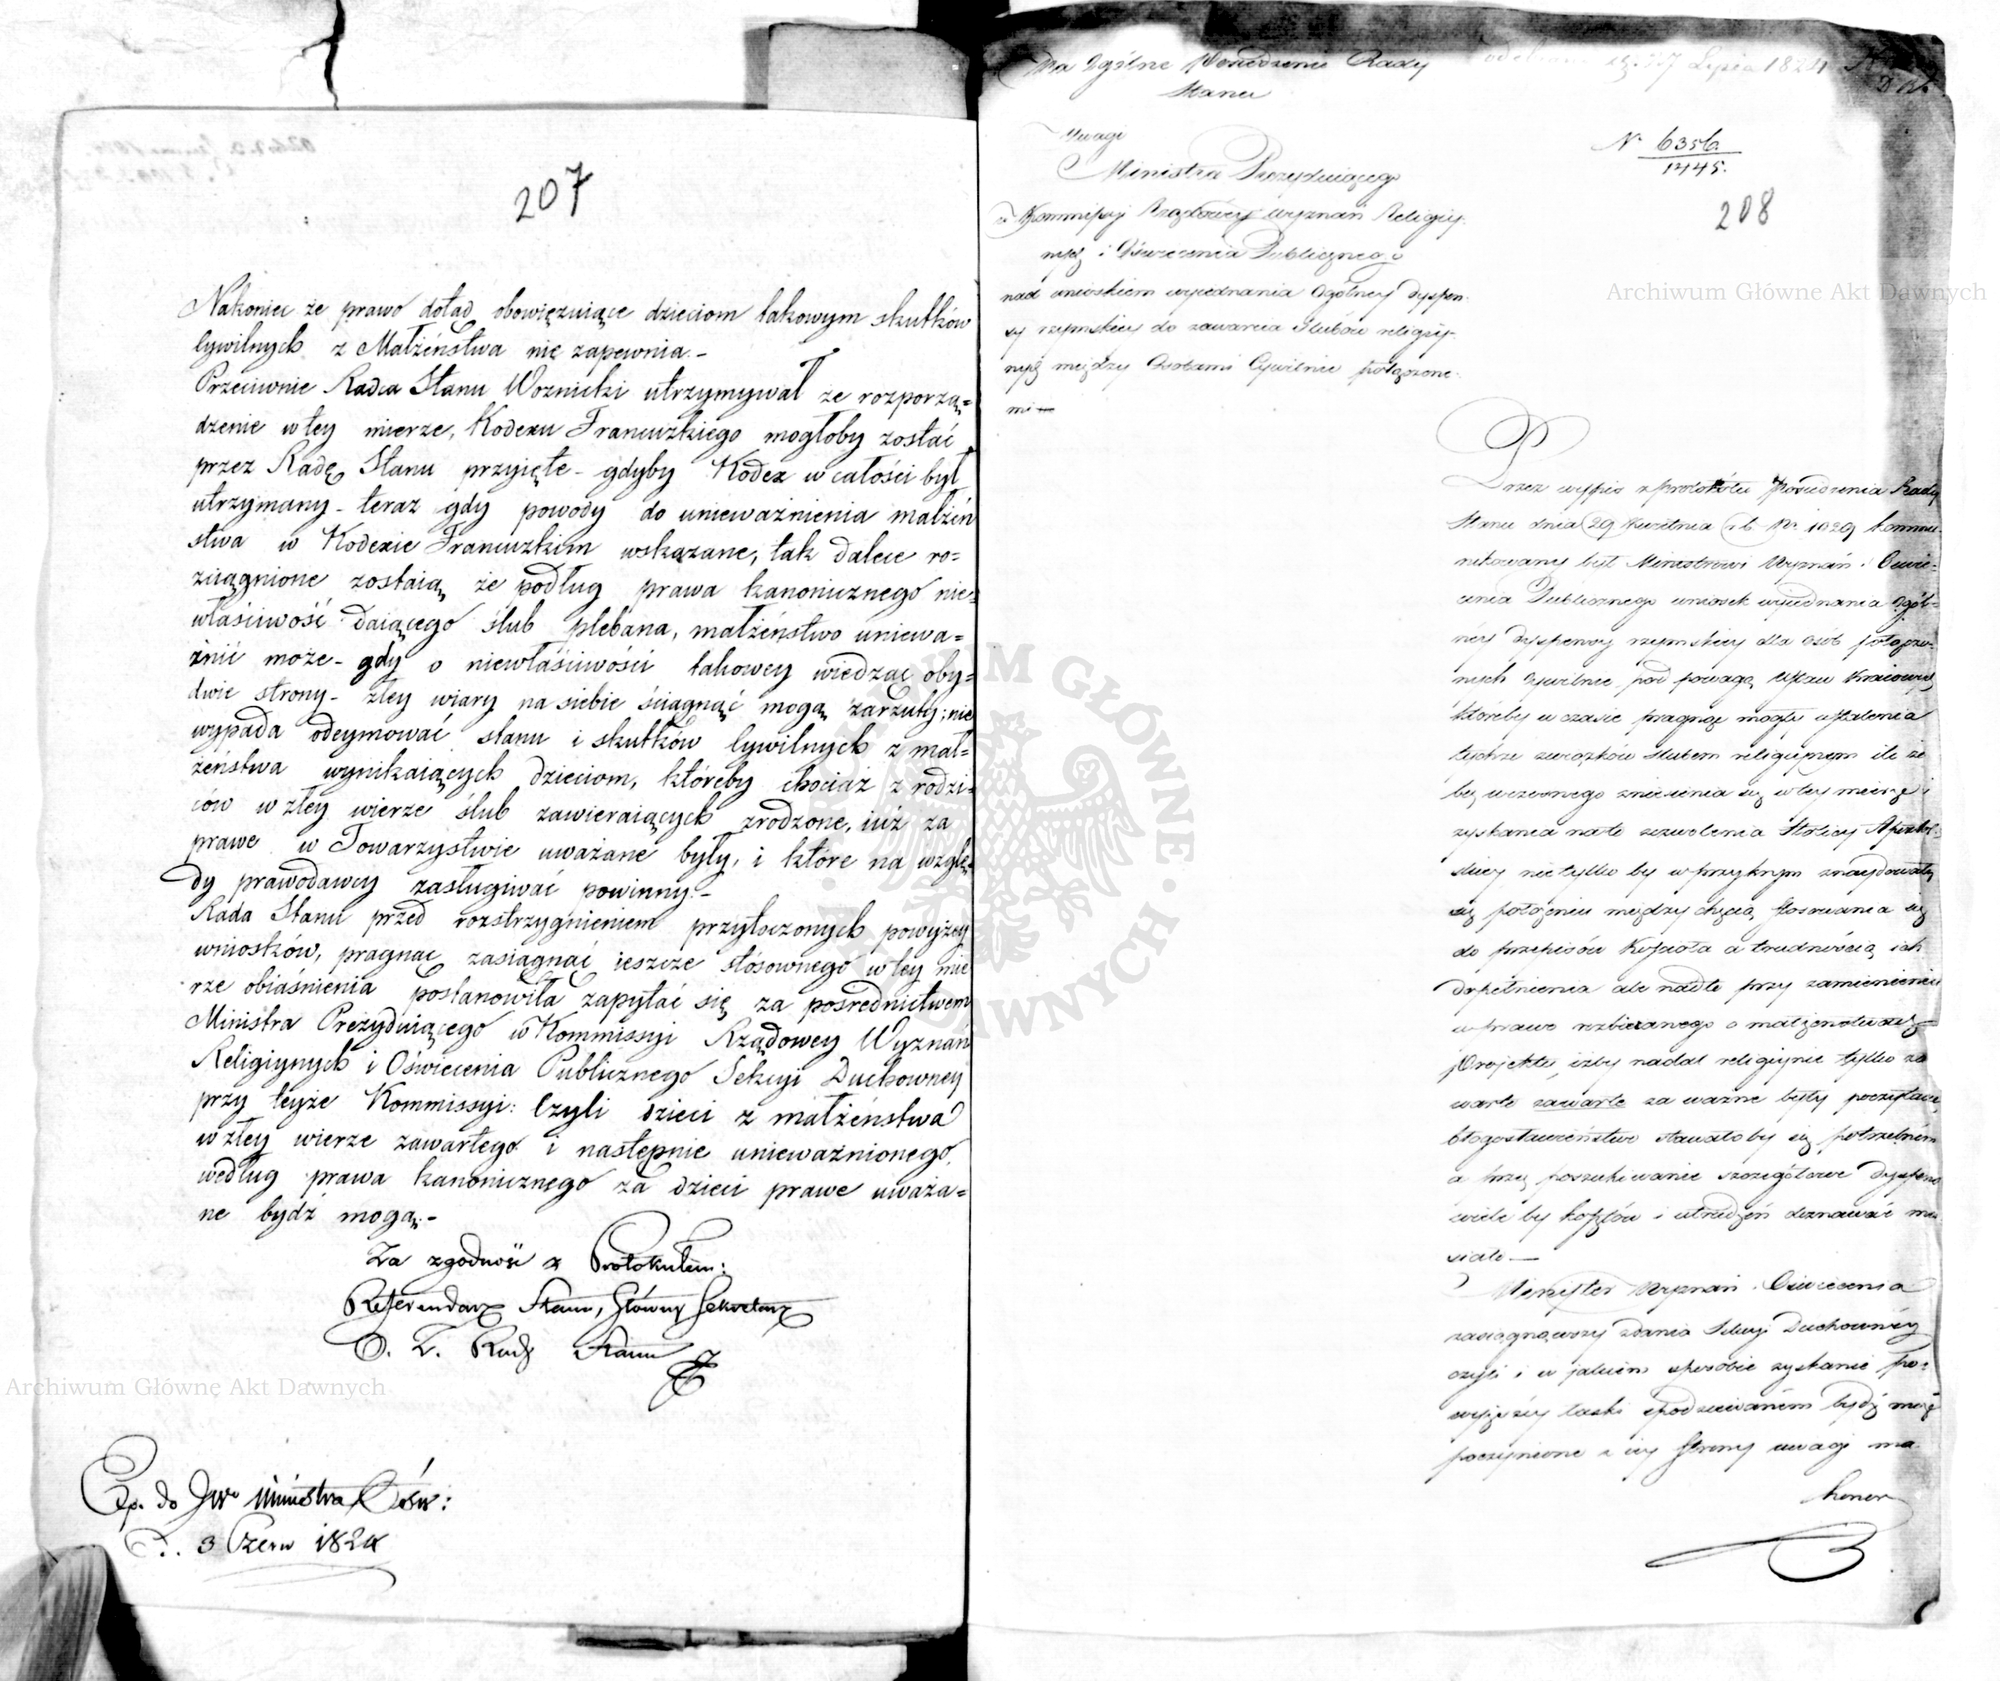 207
Nakoniec że prawo dotąd obowięzuiące dzieciom takowym skutków
Cywilnych z Małżeństwa nie zapewnia.-
Przeciwnie Radca Stanu Woznicki utrzymywał że rozporzą=
dzenie w tey mierze, Kodexu Francuzkiego mogłoby zostać
przez Radę Stanu przyięte - gdyby Kodex w całości był
utrzymany - teraz gdy powody do unieważnienia małżeń
stwa w Kodexie Francuzkim wskazane, tak dalece ro=
zciągnione zostaią, że podług prawa kanonicznego nie=
właściwość daiącego ślub plebana, małżeństwo uniewa=
żnić może - gdy o niewłaściwości takowey wiedząc oby=
dwie strony - złey wiary na siebie ściągnąć mogą zarzuty; nie
wypada odeymować stanu i skutków Cywilnych z mał=
żeństwa wynikaiących dzieciom, któreby chociaż z rodzi=
ców w złey wierze ślub zawieraiących zrodzone, iuż za
prawe w Towarzystwie uważane były, i które na wzglę=
dy prawodawcy zasługiwać powinny.-
Rada Stanu przed rozstrzygnieniem przytoczonych powyżey
wniosków, pragnąc zasiągnąć ieszcze stósownego w tey mie
rze obiaśnienia postanowiła zapytać się za pośrednictwem
Ministra Prezyduiącego w Kommissyi Rządowey Wyznań
Religiynych i Oświecenia Publicznego Sekcyi Duchowney
przy teyże Kommissyi: Czyli dzieci z małżeństwa
w złey wierze zawartego i następnie unieważnionego,
według prawa kanonicznego za dzieci prawe uważa=
ne bydź mogą.-
Za zgodność z Protokułem:
Referendarz Stanu, Główny Sekretarz
Rady Stanu
Exp. do JWo Ministra Ośw:
D. 3 Czerw 1824
Na Ogólne Posiedzenie Rady Stanu
odebrano 17 Lipca 1824
Nº 6356
1445.
208
Uwagi
Ministra Prezyduiącego
w Kommissyi Rządowey Wyznań Religiy-
nych i Oświecenia Publicznego
nad wnioskiem wyiednania Ogólney dyspen-
sy rzymskiey do zawarcia Ślubów religiy-
nych między Osobami Cywilnie połączone-
mi -
Przez wypis z protokółu Posiedzenia Rady
Stanu dnia 29 Kwietnia r. b. Nr. 1029 kommu-
nikowany był Ministrowi Wyznań i Oświe-
cenia Publicznego wniosek wyiednania Ogól-
ney dyspensy rzymskiey dla osób połączo-
nych Cywilnie pod powagą Ustaw Kraiowych
któreby w czasie pragnąć mogły ustalenia
tychże związków Ślubem religiynym ile że
bez wczesnego zniesienia się w tey mierze i
zyskania na to zezwolenia Stolicy Apostol-
skiey nie tylko by w przykrym znaydowały
się położeniu między chęcią stosowania się
do przepisów Kościoła a trudnością ich
dopełnienia ale nadto przy zamienieniu
w prawo rozbieranego o małżeństwach
Projektu, iżby nadal religiynie tylko za
warte zawarte za ważne były poczytane,
błogosławieństwo stawałoby się potrzebném
a przez poszukiwanie szczegółowe dyspens
wiele by kosztów i utrudzeń doznawać mu
siało -
Minister Wyznań i Oświecenia
zasiągnąwszy zdania Sekcyi Duchowney
czyli i w jakim sposobie zyskanie po=
wyższey łaski spodziewaném bydź może
poczynione z iey strony uwagi ma
honor
Archiwum Główne Akt Dawnych
Archiwum Główne Akt Dawnych